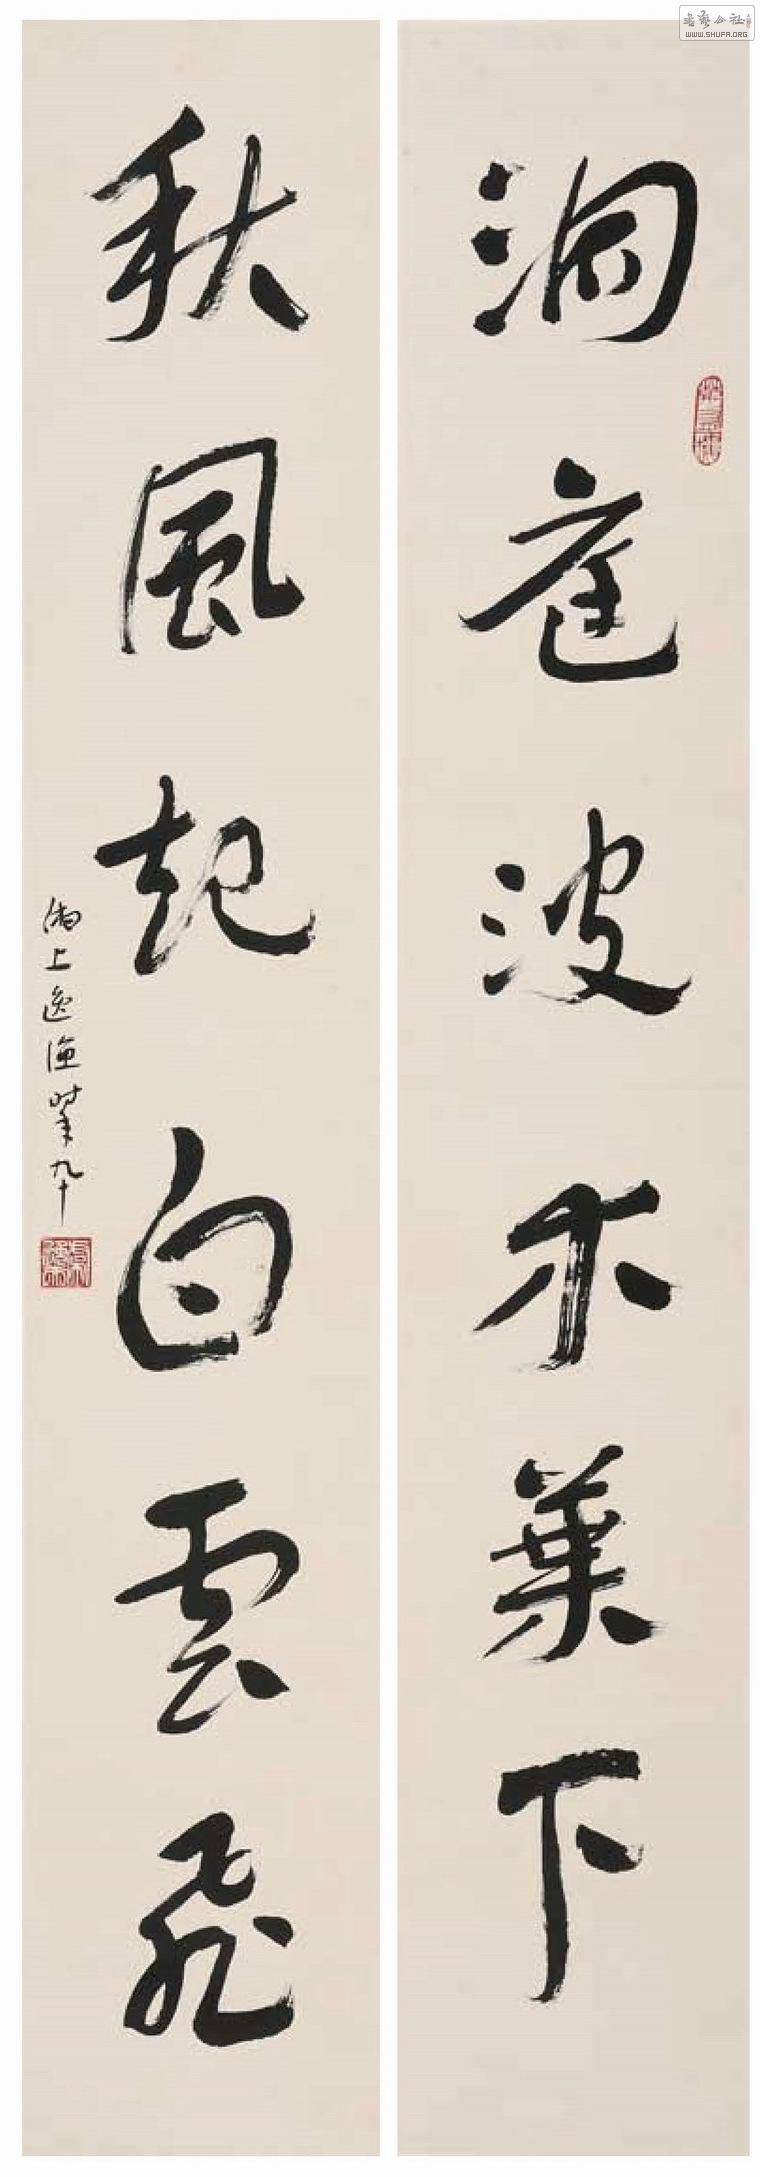 洞庭波木葉下
秋風起白雲飛
湘上逸漁 時年九十
書藝公社
WWW.SHUFA.ORG